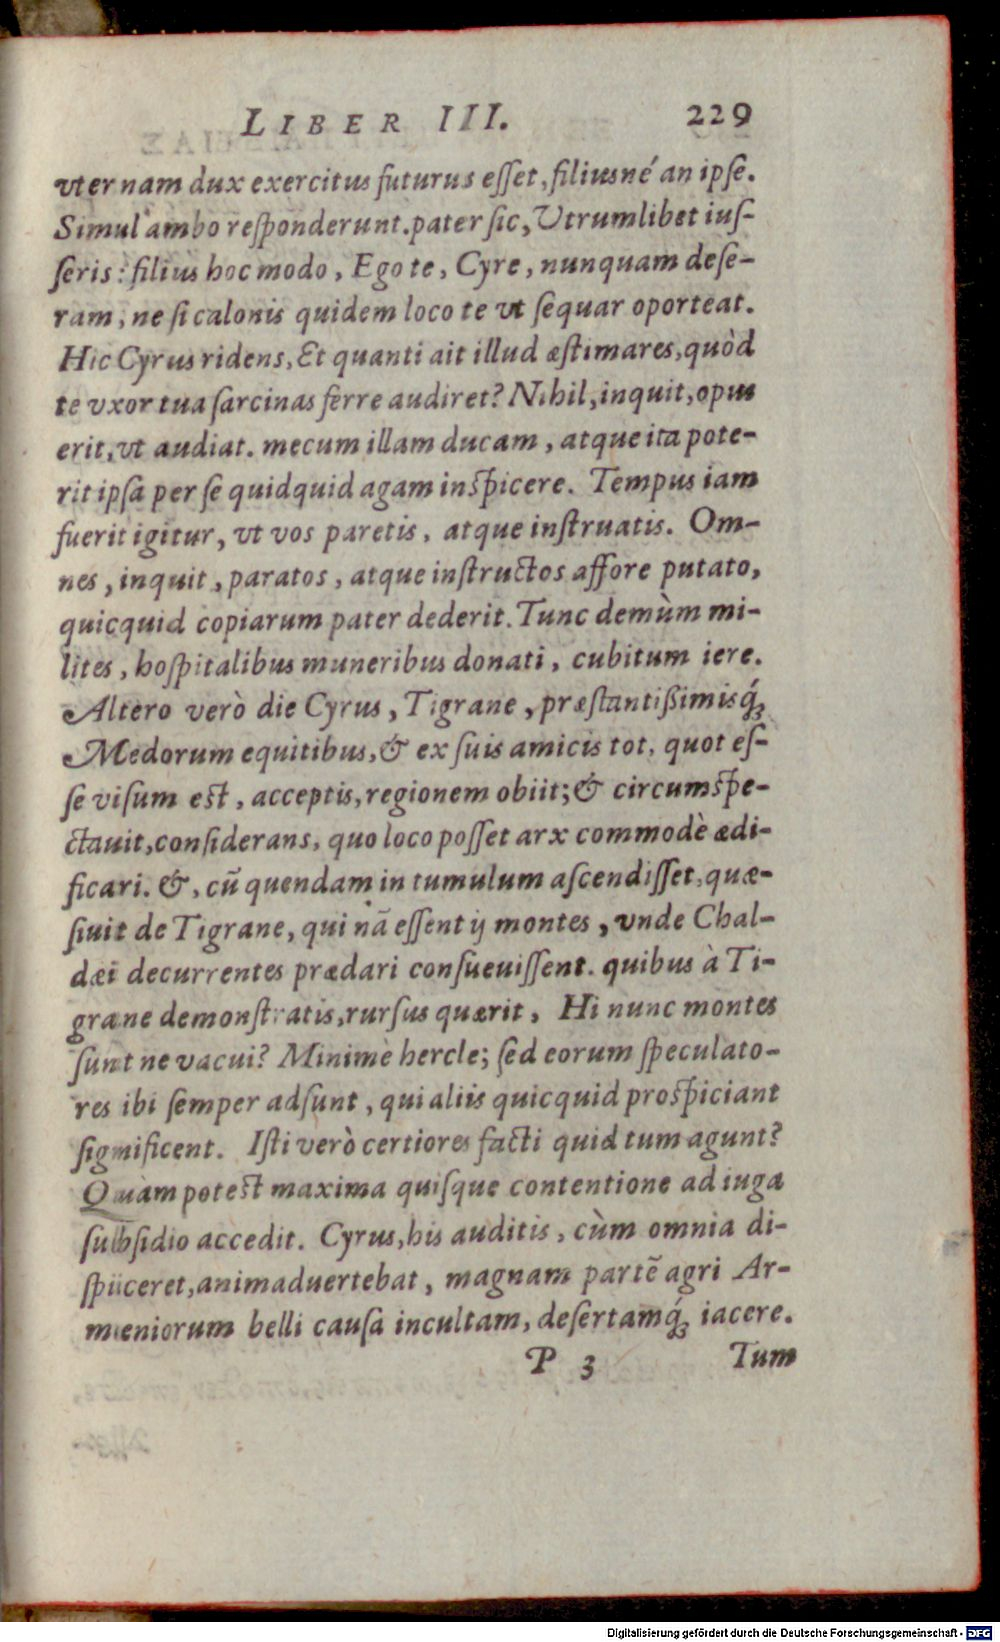 LIBER III. 229
vter nam dux exercitus futurus eſſet, filiusné an ipſe.
Simul ambo reſponderunt. pater ſic, Vtrumlibet iuſ-
ſeris: filius hoc modo, Ego te, Cyre, nunquam deſe-
ram, ne ſi calonis quidem loco te vt ſequar oporteat.
Hic Cyrus ridens, Et quanti ait illud æſtimares, quòd
te vxor tua ſarcinas ferre audiret? Nihil, inquit, opus
erit, vt audiat. mecum illam ducam, atque ita pote-
rit ipſa per ſe quidquid agam inſpicere. Tempus iam
fuerit igitur, vt vos paretis, atque inſtruatis. Om-
nes, inquit, paratos, atque inſtructos affore putato,
quicquid copiarum pater dederit. Tunc demùm mi-
lites, hoſpitalibus muneribus donati, cubitum iere.
Altero verò die Cyrus, Tigrane, præſtantißimisq́;
Medorum equitibus, & ex ſuis amicis tot, quot eſ-
ſe viſum eſt, acceptis, regionem obiit; & circumſpe-
ctauit, conſiderans, quo loco poſſet arx commodè ædi-
ficari. &, cũ quendam in tumulum aſcendiſſet, quæ-
ſiuit de Tigrane, qui nã eſſent ij montes, vnde Chal-
dæi decurrentes prædari conſueuiſſent. quibus à Ti-
grane demonſtratis, rurſus quærit, Hi nunc montes
ſunt ne vacui? Minimè hercle; ſed eorum ſpeculato-
res ibi ſemper adſunt, qui aliis quicquid proſpiciant
ſignificent. Iſti verò certiores facti quid tum agunt?
Quàm poteſt maxima quiſque contentione ad iuga
ſubſidio accedit. Cyrus, his auditis, cùm omnia di-
ſpiceret, animaduertebat, magnam partẽ agri Ar-
meniorum belli cauſa incultam, deſertamq́; iacere.
P 3 Tum
Digitalisierung gefördert durch die Deutsche Forschungsgemeinschaft - DFG